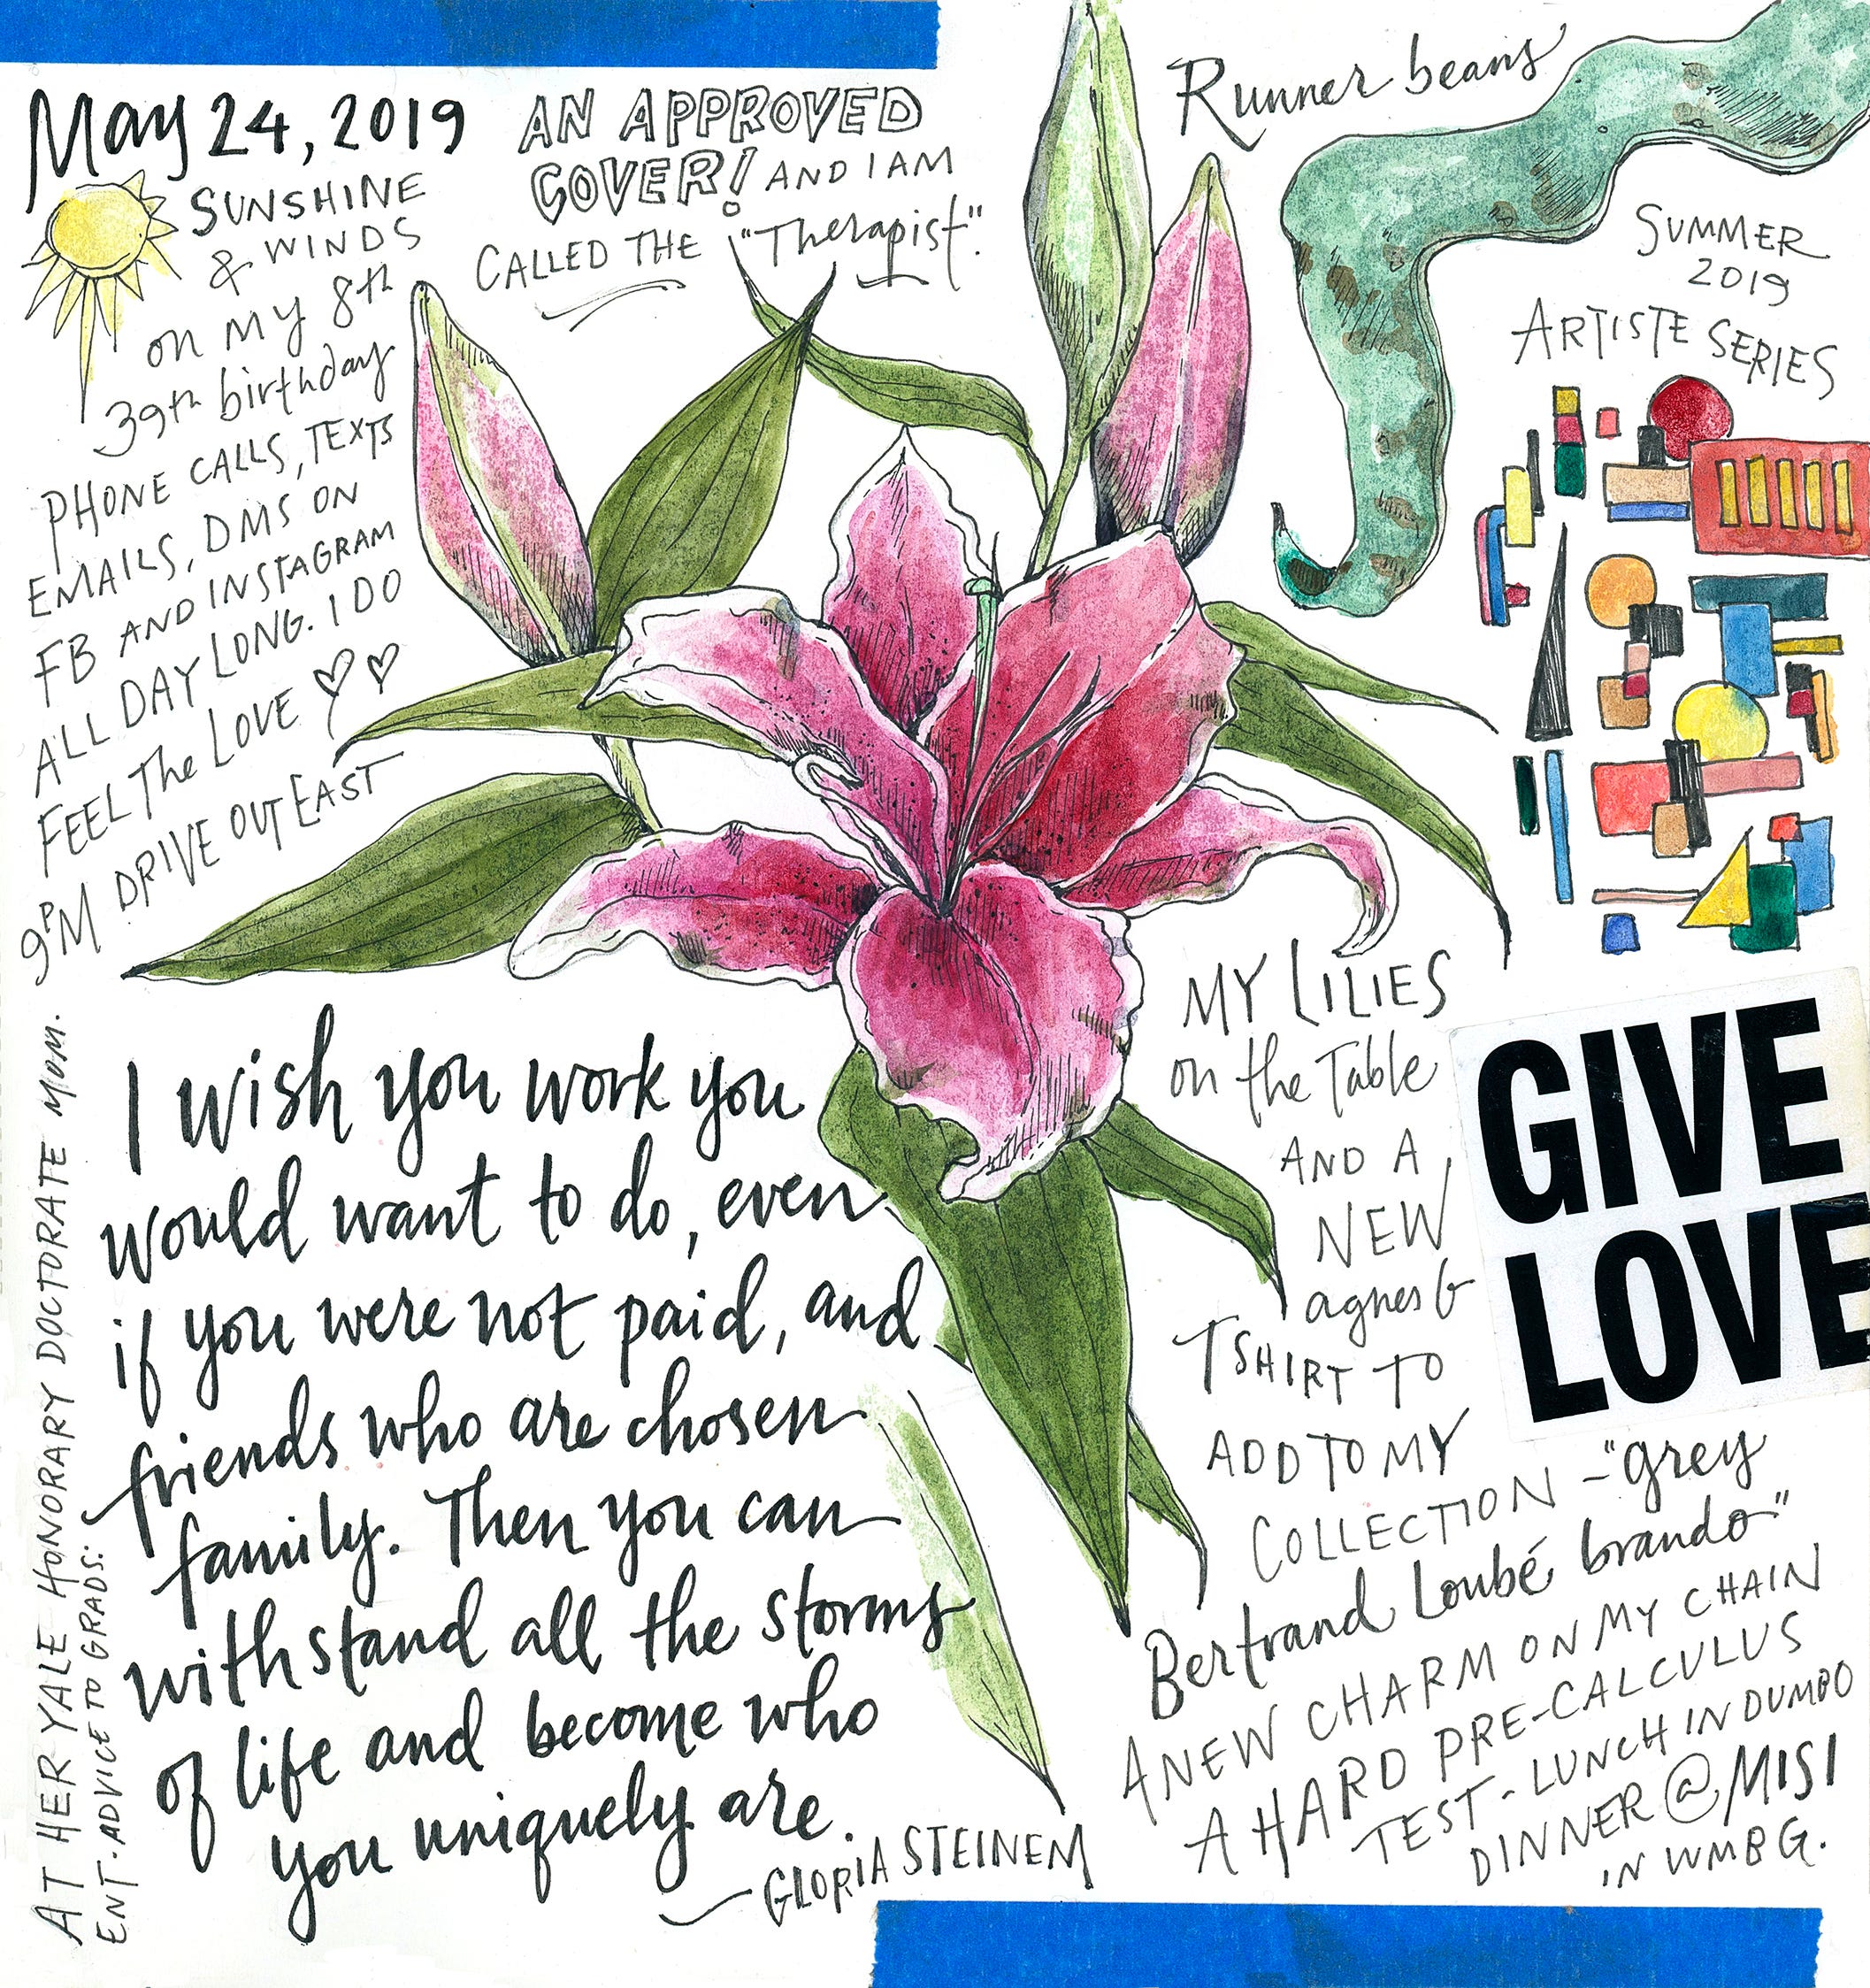 May 24, 2019
SUNSHINE
& WINDS
on my 8th
39th birthday
PHONE CALLS, TEXTS
EMAILS, DMS ON
FB AND INSTAGRAM
ALL DAY LONG. I DO
FEEL The LOVE
9PM DRIVE OUT EAST
AN APPROVED
COVER! AND I AM
CALLED THE "Therapist".
Runner beans
SUMMER
2019
ARTISTE SERIES
AT HER YALE HONORARY DOCTORATE MOM
ENT. ADVICE TO GRADS:
I wish you work you
would want to do, even
if you were not paid, and
friends who are chosen
family. Then you can
withstand all the storms
of life and become who
you uniquely are.
—GLORIA STEINEM
MY LILIES
on the Table
AND A
NEW
agnes b
TSHIRT TO
ADD TO MY
COLLECTION - "grey
Bertrand Loubé brando"
A NEW CHARM ON MY CHAIN
A HARD PRE-CALCULUS
TEST - LUNCH IN DUMBO
DINNER @ MISI
IN WMBG.
GIVE
LOVE